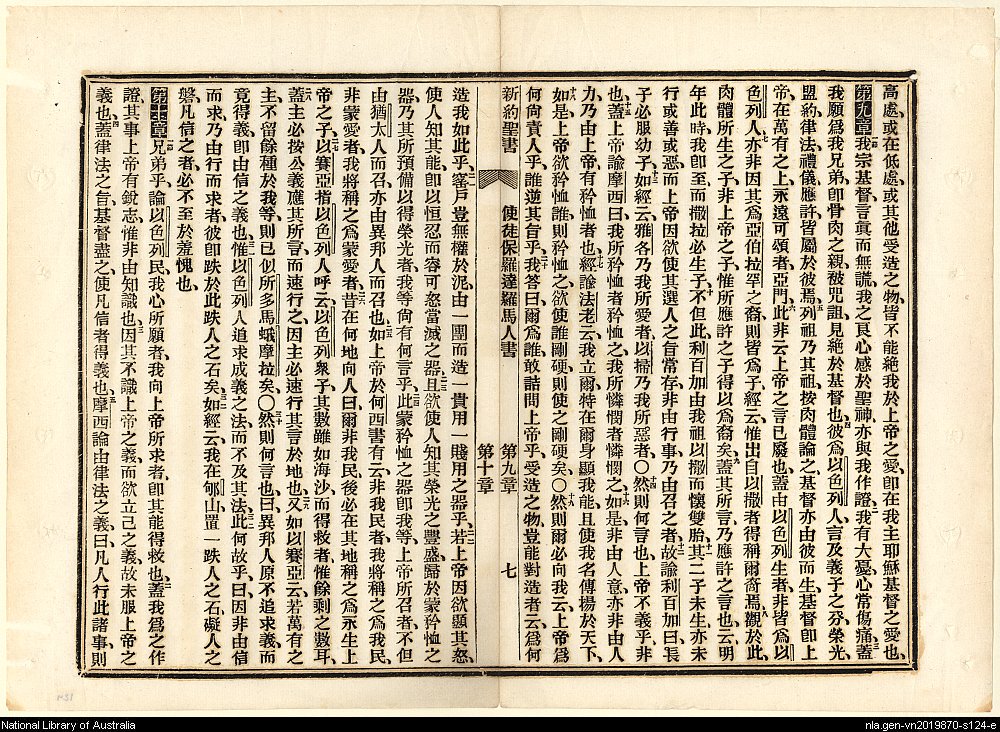 高處、或在低處、或其他受造之物、皆不能絕我於上帝之愛、卽在我主耶穌基督之愛也、
第九章 一我宗基督言眞而無謊、我之良心感於聖神、亦與我作證、二我有大憂、心常傷痛、三蓋
我願爲我兄弟、卽骨肉之親、被咒詛、見絕於基督也、四彼爲以色列人、言及義子之分、榮光、
盟約、律法、禮儀、應許、皆屬於彼焉、五列祖乃其祖、按肉體論之、基督亦由彼而生、基督卽上
帝、在萬有之上、永遠可頌者、亞門、六此非云上帝之言已廢也、蓋由以色列生者、非皆爲以
色列人、七亦非因其爲亞伯拉罕之裔、則皆爲子、經云、惟出自以撒者、得稱爾裔焉、八觀於此、
肉體所生之子、非上帝之子、惟所應許之子、得以爲裔矣、九蓋其所言、乃應許之言也、云、明
年此時、我卽至、而撒拉必生子、十不但此、利百加由我祖以撒而懷雙胎、十一其二子未生、亦未
行或善或惡、而上帝因欲使其選人之旨常存、非由行事、乃由召之者、十二故諭利百加曰、長
子必服幼子、十三如經云、雅各乃我所愛者、以掃乃我所惡者、○十四然則何言也、上帝不義乎、非
也、十五蓋上帝諭摩西曰、我所矜恤者矜恤之、我所憐憫者憐憫之、十六如是、非由人意、亦非由人
力、乃由上帝有矜恤者也、十七經諭法老云、我立爾、特在爾身顯我能、且使我名傳揚於天下、
十八如是上帝欲矜恤誰、則矜恤之、欲使誰剛硬、則使之剛硬矣、○十九然則爾必向我云、上帝爲
何尚責人乎、誰逆其旨乎、二十我答曰、爾爲誰、敢詰問上帝乎、受造之物、豈能對造者云、爲何
新約聖書 使徒保羅達羅馬人書 第九章 七
第十章
造我如此乎、二一窰戶豈無權於泥、由一團而造一貴用一賤用之器乎、二二若上帝因欲顯其怒、
使人知其能、卽以恒忍而容可怒當滅之器、二三且欲使人知其榮光之豐盛、歸於蒙矜恤之
器、乃其所預備以得榮光者、我等尚有何言乎、二四此蒙矜恤之器、卽我等、上帝所召者、不但
由猶太人而召、亦由異邦人而召也、二五如上帝於何西書有云、非我民者、我將稱之爲我民、
非蒙愛者、我將稱之爲蒙愛者、二六昔在何地向人曰、爾非我民、後必在其地稱之爲永生上
帝之子、二七以賽亞指以色列人呼云、以色列衆子、其數雖如海沙、而得救者惟餘剩之數耳、
二八蓋主必按公義應其所言、而速行之、因主必速行其言於地也、二九又如以賽亞云、若萬有之
主、不留餘種於我等、則已似所多馬蛾摩拉矣、○三十然則何言也、曰、異邦人原不追求義、而
竟得義、卽由信之義也、三一惟以色列人追求成義之法、而不及其法、三二此何故乎、曰、因非由信
而求、乃由行而求者、彼卽跌於此跌人之石矣、三三如經云、我在郇山置一跌人之石、礙人之
磐、凡信之者、必不至於羞愧也、
第十章 一兄弟乎、論以色列民、我心所願者、我向上帝所求者、卽其能得救也、二蓋我爲之作
證、其事上帝有銳志、惟非由知識也、三因其不識上帝之義、而欲立己之義、故未服上帝之
義也、四蓋律法之旨、基督盡之、使凡信者得義也、五摩西論由律法之義、曰、凡人行此諸事、則
National Library of Australia
nla.gen-vn2019870-s124-e